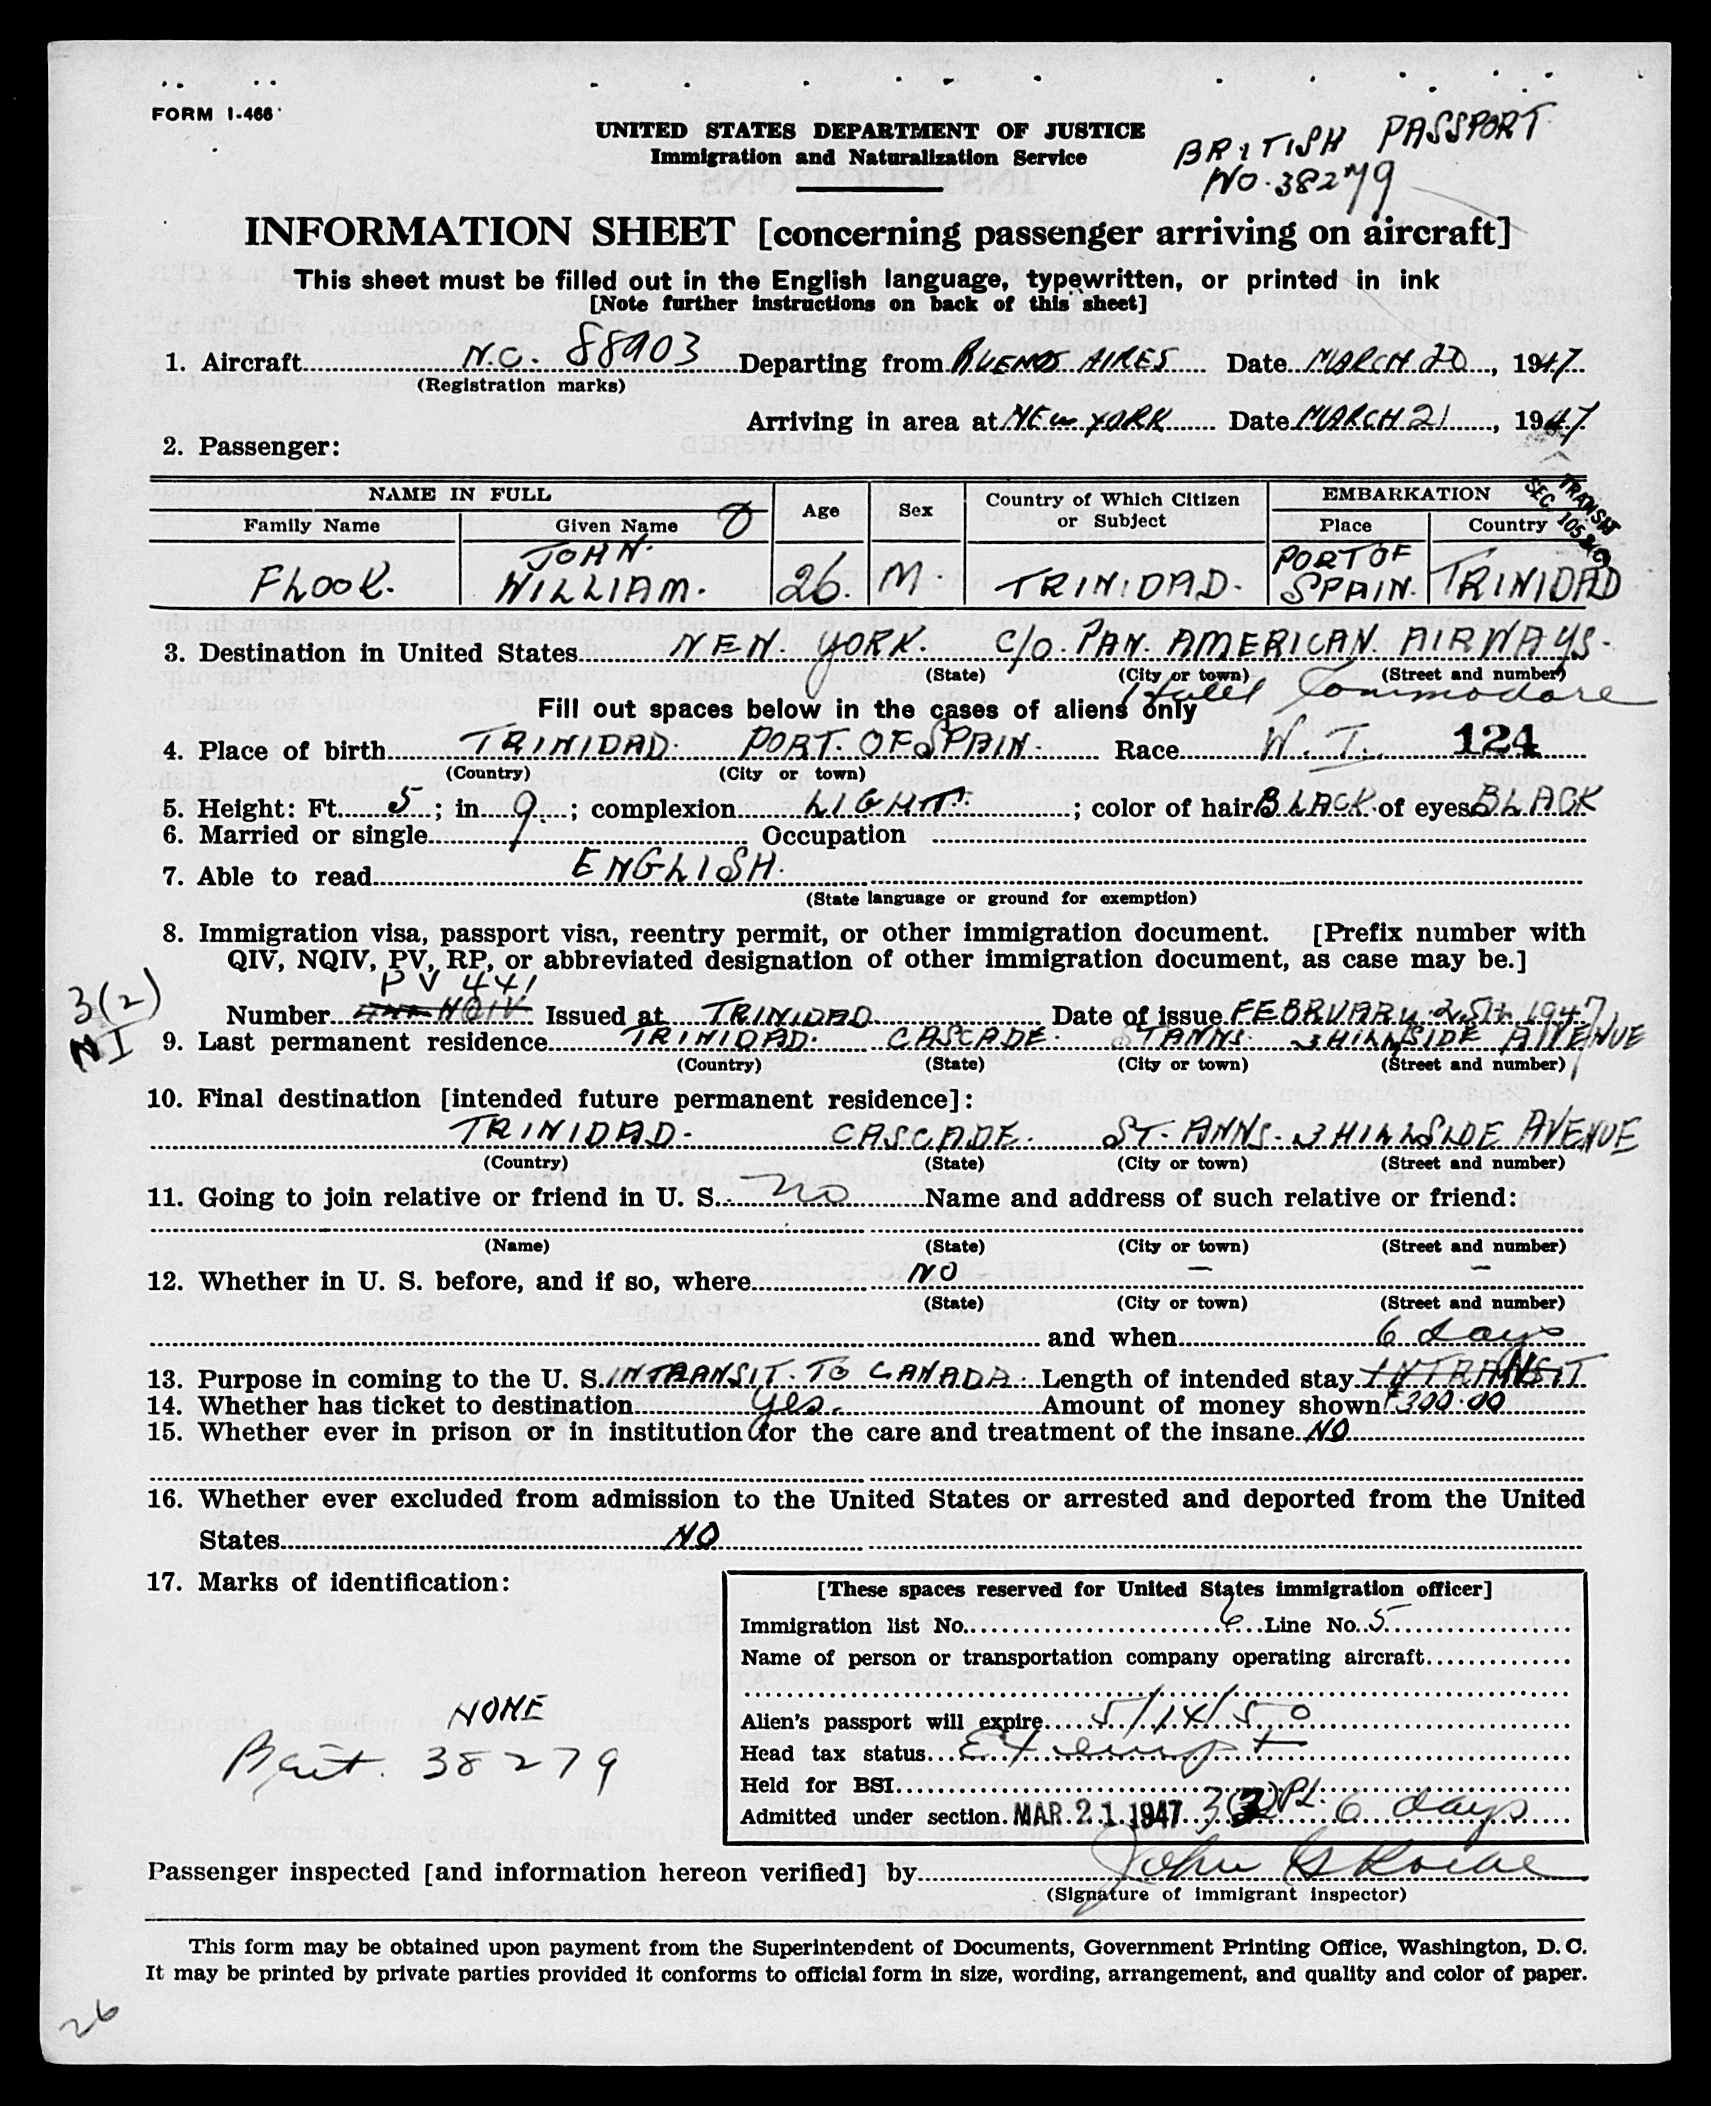 FORM I-466
UNITED STATES DEPARTMENT OF JUSTICE
Immigration and Naturalization Service
BRITISH PASSPORT
NO. 38279
INFORMATION SHEET [concerning passenger arriving on aircraft]
This sheet must be filled out in the English language, typewritten, or printed in ink
[Note further instructions on back of this sheet]
1. Aircraft N.C. 88903 Departing from BUENOS AIRES Date MARCH 20, 1947.
(Registration marks)
Arriving in area at NEW YORK Date MARCH 21, 1947.
2. Passenger:
NAME IN FULL Age Sex Country of Which Citizen or Subject EMBARKATION
Family Name Given Name Place Country
TRANSIT
SEC 105
FLOOK. JOHN. WILLIAM. 26. M. TRINIDAD. PORT OF SPAIN. TRINIDAD
3. Destination in United States NEW. YORK. C/O. PAN. AMERICAN. AIRWAYS.
(State) (City or town) (Street and number)
Hotel Commodore
Fill out spaces below in the cases of aliens only
4. Place of birth TRINIDAD. PORT. OF SPAIN. Race W. I. 124
(Country) (City or town)
5. Height: Ft. 5; in. 9; complexion LIGHT; color of hair BLACK. of eyes BLACK
6. Married or single Occupation
7. Able to read ENGLISH.
(State language or ground for exemption)
8. Immigration visa, passport visa, reentry permit, or other immigration document. [Prefix number with
QIV, NQIV, PV, RP, or abbreviated designation of other immigration document, as case may be.]
3(2)
NI
PV 441
Number NQIV Issued at TRINIDAD Date of issue FEBRUARY. 25th 1947
9. Last permanent residence TRINIDAD. CASCADE. ST ANNS. 3 HILLSIDE AVENUE
(Country) (State) (City or town) (Street and number)
10. Final destination [intended future permanent residence]:
TRINIDAD. CASCADE. ST. ANNS. 3 HILLSIDE AVENUE
(Country) (State) (City or town) (Street and number)
11. Going to join relative or friend in U. S. no Name and address of such relative or friend:
(Name) (State) (City or town) (Street and number)
12. Whether in U. S. before, and if so, where NO — —
(State) (City or town) (Street and number)
and when
6 days
13. Purpose in coming to the U. S. INTRANSIT. TO CANADA. Length of intended stay INTRANSIT
14. Whether has ticket to destination yes. Amount of money shown 300.00
15. Whether ever in prison or in institution for the care and treatment of the insane NO
16. Whether ever excluded from admission to the United States or arrested and deported from the United
States NO
17. Marks of identification:
NONE
Brit. 38279
[These spaces reserved for United States immigration officer]
Immigration list No. 6 Line No. 5
Name of person or transportation company operating aircraft
Alien's passport will expire 5/14/50
Head tax status Exempt
Held for BSI
Admitted under section. MAR 21 1947 3(2) 6 days
Passenger inspected [and information hereon verified] by John
(Signature of immigrant inspector)
This form may be obtained upon payment from the Superintendent of Documents, Government Printing Office, Washington, D. C.
It may be printed by private parties provided it conforms to official form in size, wording, arrangement, and quality and color of paper.
26